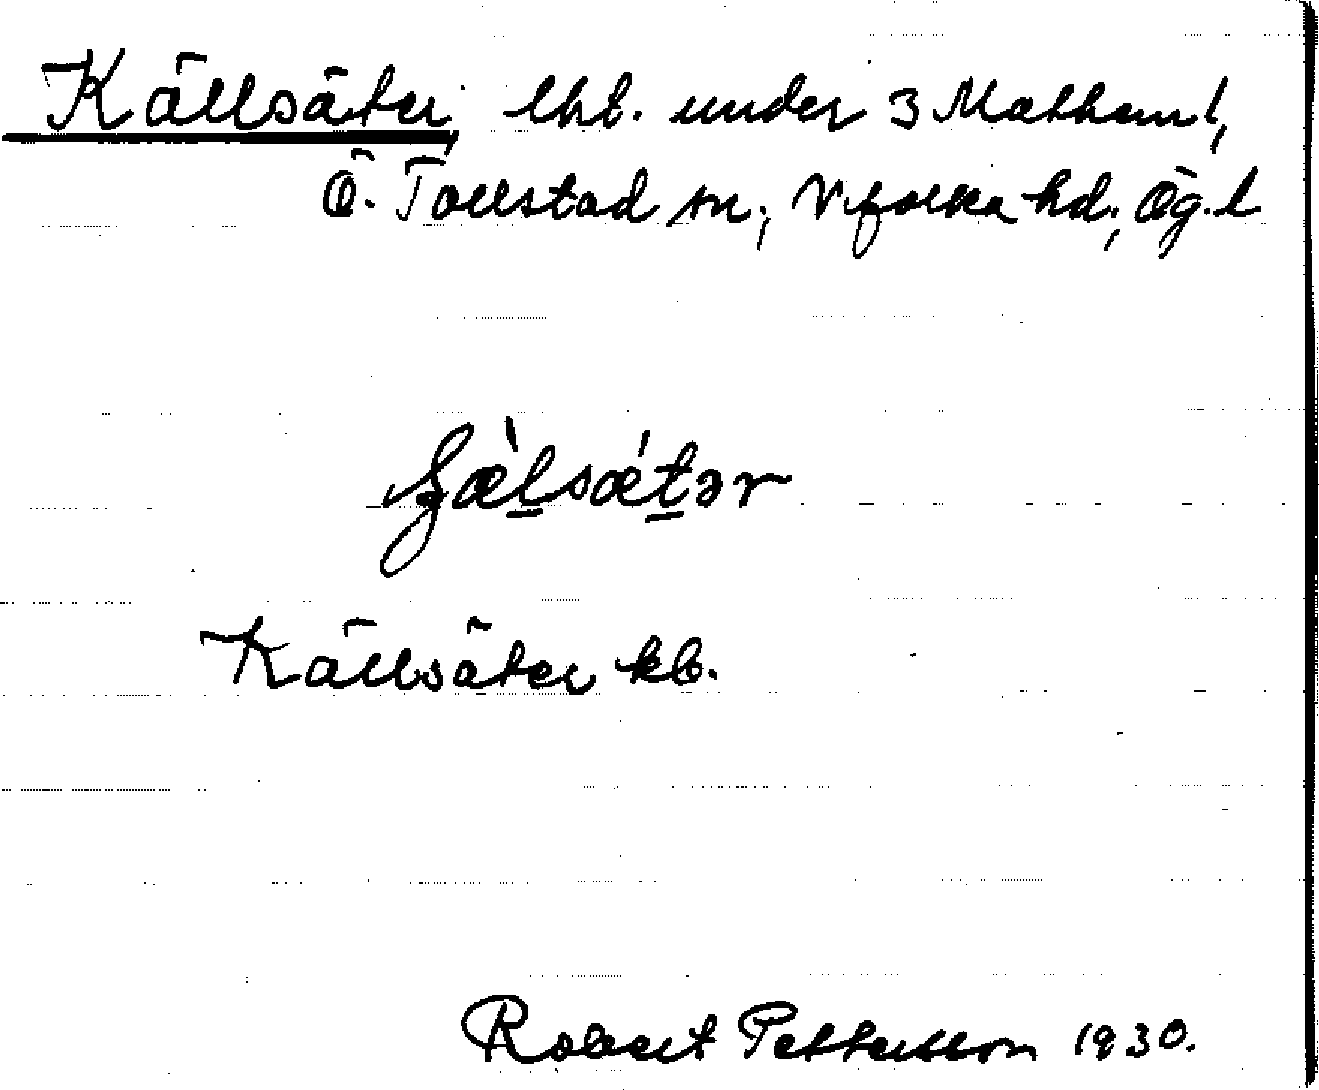 Källsäter, lht. under 3 Mathem l,
Ö. Tollstad sn, Vifolka hd, Ög. l
Källsäter kb.
Robert Pettersson 1930.